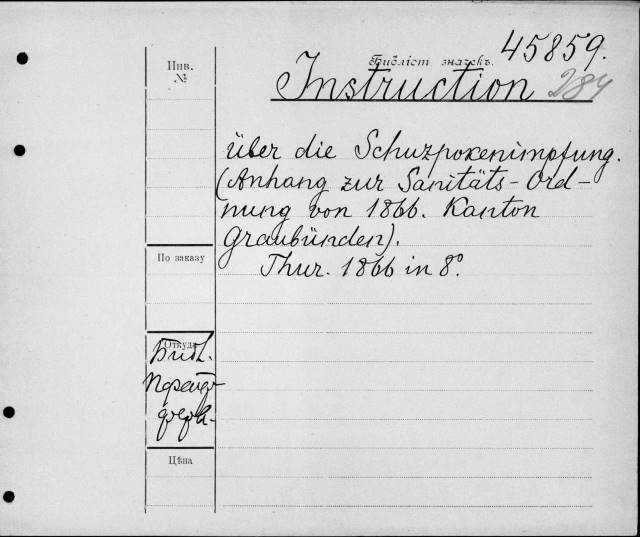 45859.
Инв. №
Библіот. значекъ.
Instruction 284
über die Schuzpokenimpfung.
(Anhang zur Sanitäts-Ord-
nung von 1866. Kanton
Graubünden).
Thur. 1866 in 8º.
По заказу
Откуда
Библ.
Цѣна